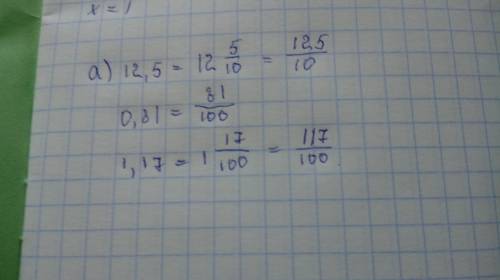 x = 1
а) 12,5 = 12 5/10 = 125/10
0,81 = 81/100
1,17 = 1 17/100 = 117/100